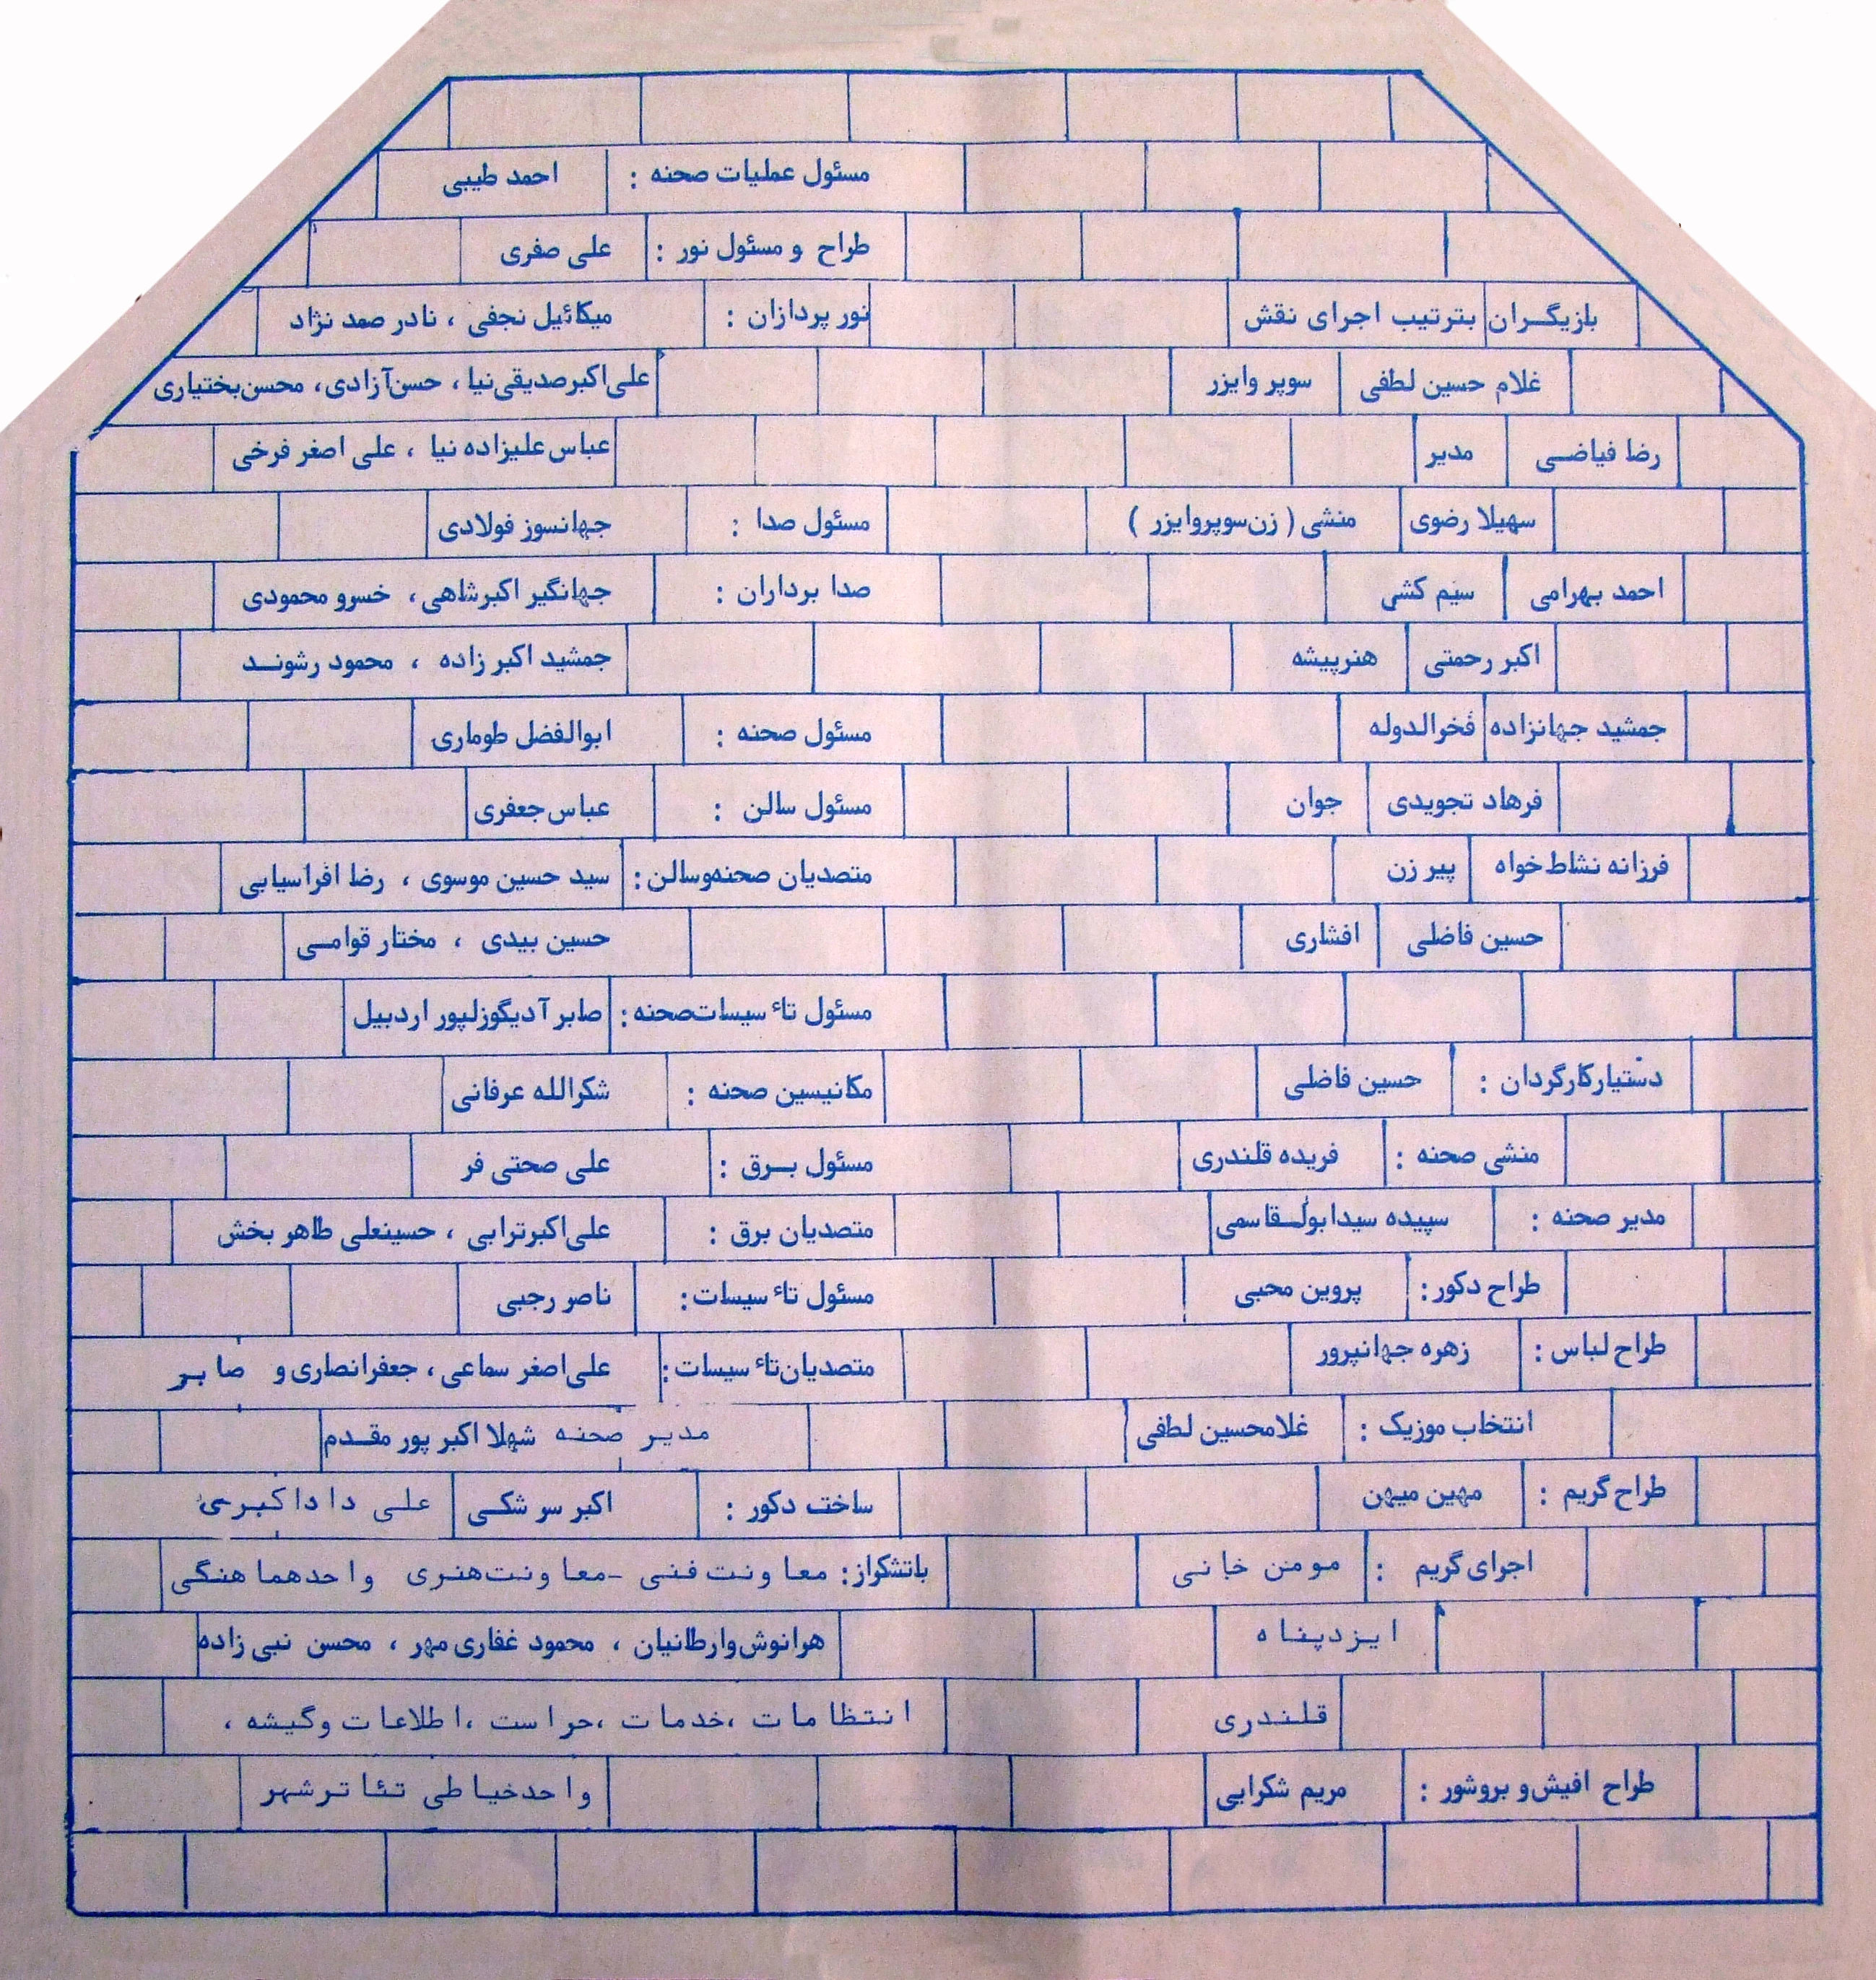 بازیگران بترتیب اجرای نقش
غلام حسین لطفی سوپر وایزر
رضا فیاضی مدیر
سهیلا رضوی منشی ( زن سوپروایزر )
احمد بهرامی سیم کش
اکبر رحمتی هنرپیشه
جمشید جهانزاده فخرالدوله
فرهاد تجویدی جوان
فرزانه نشاط خواه پیر زن
حسین فاضلی افشاری
دستیار کارگردان : حسین فاضلی
منشی صحنه : فریده قلندری
مدیر صحنه : سپیده سیدابولقاسمی
طراح دکور : پروین محبی
طراح لباس : زهره جهانپرور
انتخاب موزیک : غلامحسین لطفی
طراح گریم : مهین میهن
اجرای گریم : مومن خانی
ایزدپناه
قلندری
طراح افیش و بروشور : مریم شکرایی
مسئول عملیات صحنه : احمد طیبی
طراح و مسئول نور : علی صفری
نور پردازان : میکائیل نجفی ، نادر صمد نژاد
علی اکبر صدیقی نیا ، حسن آزادی ، محسن بختیاری
عباس علیزاده نیا ، علی اصغر فرخی
مسئول صدا : جهانسوز فولادی
صدا برداران : جهانگیر اکبرشاهی ، خسرو محمودی
جمشید اکبر زاده ، محمود رشوند
مسئول صحنه : ابوالفضل طوماری
مسئول سالن : عباس جعفری
متصدیان صحنه و سالن : سید حسین موسوی ، رضا افراسیابی
حسین بیدی ، مختار قوامی
مسئول تأسیسات صحنه : صابر آدیگوزلپور اردبیل
مکانیسین صحنه : شکرالله عرفانی
مسئول برق : علی صحتی فر
متصدیان برق : علی اکبر ترابی ، حسینعلی طاهر بخش
مسئول تأسیسات : ناصر رجبی
متصدیان تأسیسات : علی اصغر سماعی ، جعفر انصاری و صابر
مدیر صحنه شهلا اکبر پور مقدم
ساخت دکور : اکبر سر شکی علی داداکبری
باتشکراز : معاونت فنی - معاونت هنری واحد هماهنگی
هرانوش وارطانیان ، محمود غفاری مهر ، محسن نبی زاده
انتظامات ، خدمات ، حراست ، اطلاعات وگیشه ،
واحد خیاطی تئاتر شهر